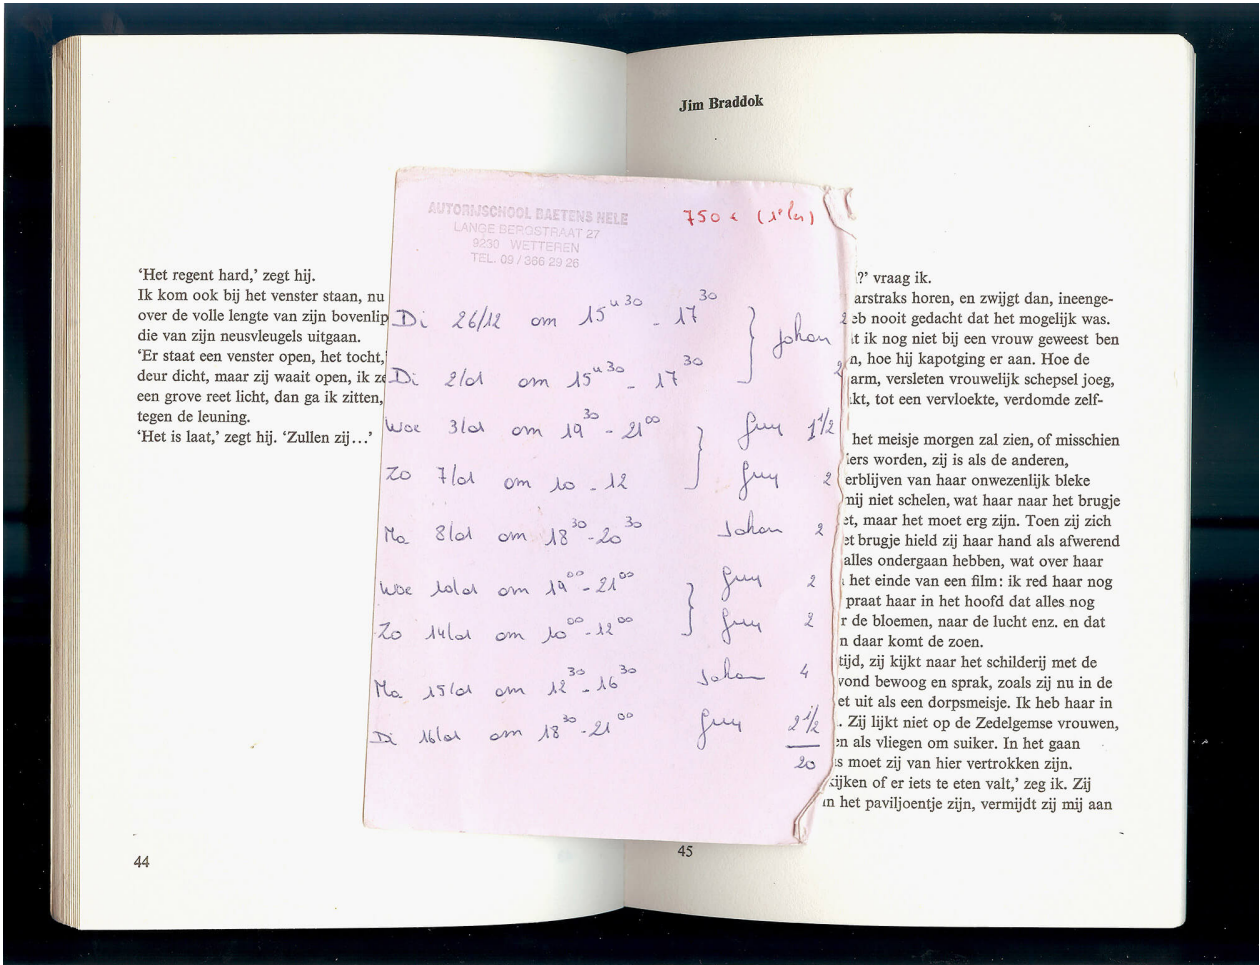 'Het regent hard,' zegt hij.
Ik kom ook bij het venster staan, nu
over de volle lengte van zijn bovenlip
die van zijn neusvleugels uitgaan.
'Er staat een venster open, het tocht,'
deur dicht, maar zij waait open, ik
een grove reet licht, dan ga ik zitten,
tegen de leuning.
'Het is laat,' zegt hij. 'Zullen zij...'
44
AUTORIJSCHOOL BAETENS NELE
LANGE BERGSTRAAT 27
9230 WETTEREN
TEL. 09 / 366 29 26
750 € (1e les)
Di 26/12 om 15u30 - 17 30 Johan 2
Di 2/01 om 15u30 - 17 30 2
Woe 3/01 om 19 30 - 21 00 Guy 1 1/2
Zo 7/01 om 10 - 12 Guy 2
Ma 8/01 om 18 30 - 20 30 Johan 2
Woe 10/01 om 19 00 - 21 00 Guy 2
Zo 14/01 om 10 00 - 12 00 Guy 2
Ma 15/01 om 12 30 - 16 30 Johan 4
Di 16/01 om 18 30 - 21 00 Guy 2 1/2
20
Jim Braddok
?' vraag ik.
arstraks horen, en zwijgt dan, ineenge-
eb nooit gedacht dat het mogelijk was.
t ik nog niet bij een vrouw geweest ben
n, hoe hij kapotging er aan. Hoe de
arm, versleten vrouwelijk schepsel joeg,
kt, tot een vervloekte, verdomde zelf-
het meisje morgen zal zien, of misschien
iers worden, zij is als de anderen,
erblijven van haar onwezenlijk bleke
mij niet schelen, wat haar naar het brugje
et, maar het moet erg zijn. Toen zij zich
et brugje hield zij haar hand als afwerend
alles ondergaan hebben, wat over haar
het einde van een film: ik red haar nog
praat haar in het hoofd dat alles nog
r de bloemen, naar de lucht enz. en dat
n daar komt de zoen.
tijd, zij kijkt naar het schilderij met de
vond bewoog en sprak, zoals zij nu in de
et uit als een dorpsmeisje. Ik heb haar in
. Zij lijkt niet op de Zedelgemse vrouwen,
en als vliegen om suiker. In het gaan
s moet zij van hier vertrokken zijn.
kijken of er iets te eten valt,' zeg ik. Zij
n het paviljoentje zijn, vermijdt zij mij aan
45